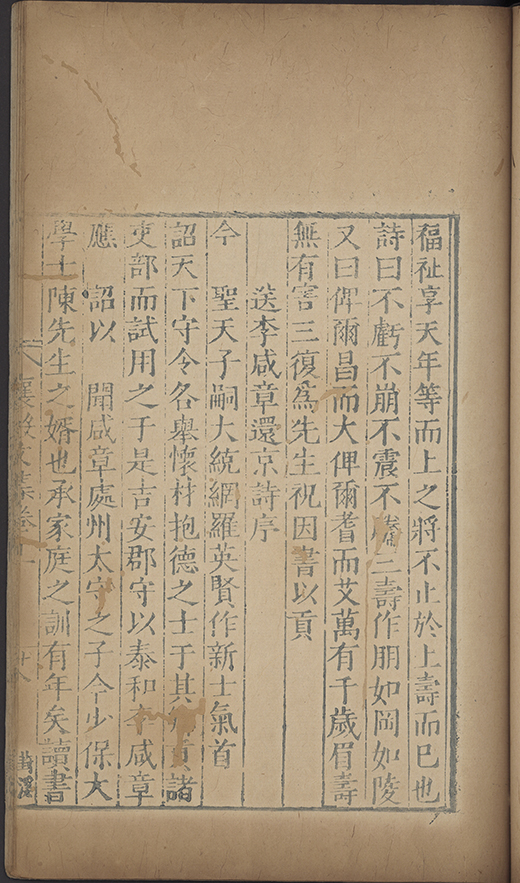 福祉享天年等而上之將不止於上壽而已也
詩曰不虧不崩不震不騰三壽作朋如岡如陵
又曰俾爾昌而大俾爾耆而艾萬有千歲眉壽
無有害三復爲先生祝因書以貢
送李咸章還京詩序
今 聖天子嗣大統網羅英賢作新士氣首
詔天下守令各舉懷材抱德之士于其鄉貢諸
吏部而試用之于是吉安郡守以泰和李咸章
應 詔以 聞咸章處州太守之子今少保大
學士陳先生之婿也承家庭之訓有年矣讀書
襄毅文集卷